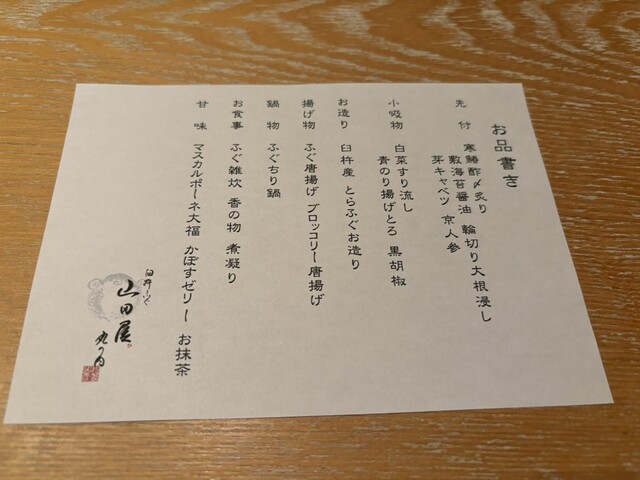 お品書き
先付 寒鰆酢〆炙り 輪切り大根浸し
敷海苔醤油
芽キャベツ 京人参
小吸物 白菜すり流し
青のり揚げとろ 黒胡椒
お造り 臼杵産 とらふぐお造り
揚げ物 ふぐ唐揚げ ブロッコリー唐揚げ
鍋物 ふぐちり鍋
お食事 ふぐ雑炊 香の物 煮凝り
甘味 マスカルポーネ大福 かぼすゼリー お抹茶
臼杵ふぐ
山田屋
丸の内